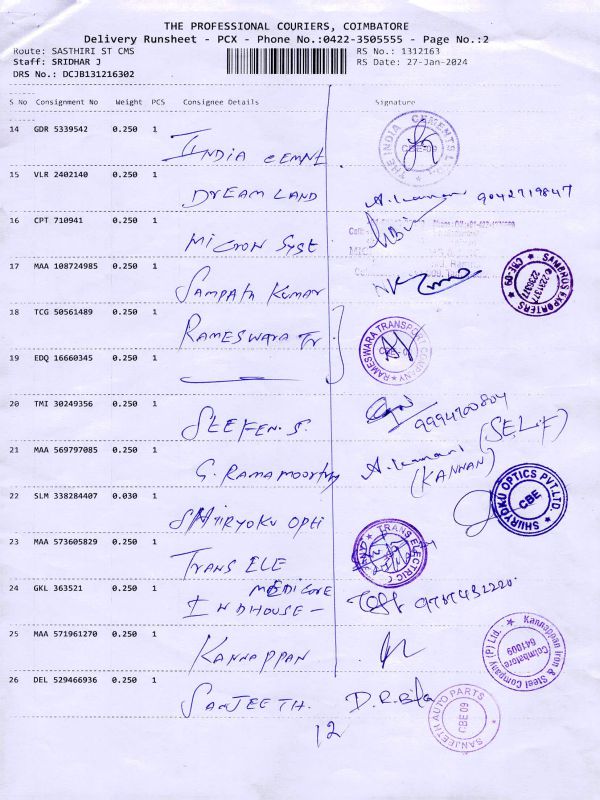 THE PROFESSIONAL COURIERS, COIMBATORE
Delivery Runsheet - PCX - Phone No.:0422-3505555 - Page No.:2
Route: SASTHIRI ST CMS RS No.: 1312163
Staff: SRIDHAR J RS Date: 27-Jan-2024
DRS No.: DCJB131216302
S No Consignment No Weight PCS Consignee Details Signature
14 GDR 5339542 0.250 1 INDIA CEMNT THE INDIA CEMENTS LTD CBE-09
15 VLR 2402140 0.250 1 DREAM LAND 9042719847
16 CPT 710941 0.250 1 MICRON SYST
17 MAA 108724985 0.250 1 SAMPATH KUMAR SAMBRUS EXPORTERS CBE-09
18 TCG 50561489 0.250 1 RAMESWARA TR RAMESWARA TRANSPORT COMPANY
19 EDQ 16660345 0.250 1
20 TMI 30249356 0.250 1 STEEFEN.S. (SELF)
21 MAA 569797085 0.250 1 G. RAMAMOORTHY (KANNAN)
22 SLM 338284407 0.030 1 SHIIRYOKU OPTI SHIIRYOKU OPTICS PVT.LTD. CBE
23 MAA 573605829 0.250 1 TRANS ELE TRANS ELECTRIC
24 GKL 363521 0.250 1 INDHOUSE - MEDICORE
25 MAA 571961270 0.250 1 KANNAPPAN Kannappan Iron & Steel Company (P) Ltd. Coimbatore 641009
26 DEL 529466936 0.250 1 SANJEETH. SANJEETH AUTO PARTS CBE 09
12